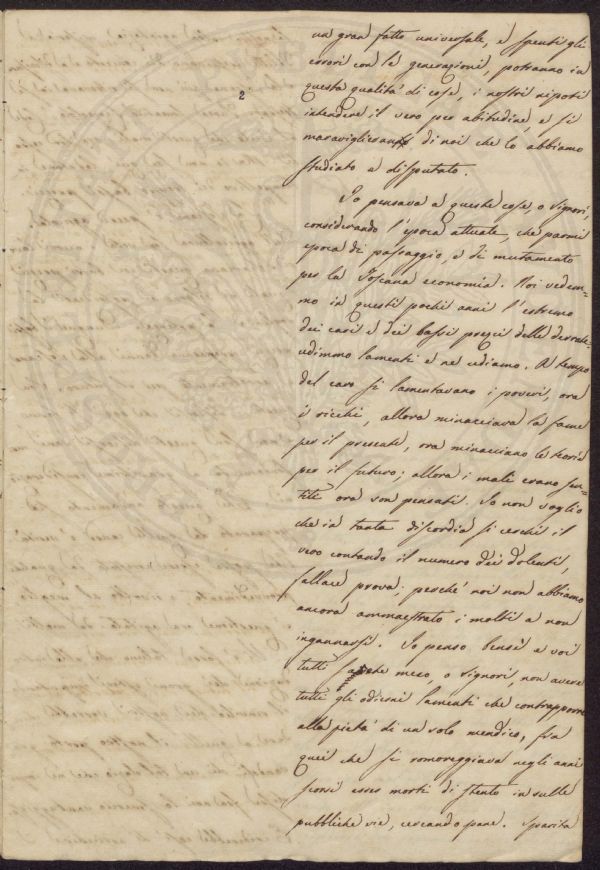 un gran fatto universale, e spenti gli
errori con le generazioni, potranno in
questa qualità di cose, i nostri nipoti
2
intendere il vero per abitudine, e si
maraviglieranno di noi che lo abbiamo
studiato e disputato.
Io pensava a queste cose, o signori,
considerando l'epoca attuale, che parmi
epoca di passaggio, e di mutamento
per la Toscana economia. Noi vedem-
mo in questi pochi anni l'estremo
dei cari e dei bassi prezzi delle derrate,
udimmo lamenti e ne udiamo. A tempo
del caro si lamentavano i poveri, ora
i ricchi, allora minacciava la fame
per il presente, ora minacciano le teorie
per il futuro; allora i mali erano sen-
titi ora son pensati. Io non voglio
che in tanta discordia si cerchi il
vero contando il numero dei dolenti,
fallace prova; perché noi non abbiamo
ancora ammaestrato i molti a non
ingannarsi. Io penso bensì e voi
tutti meco, o signori, non avere
tutti gli odierni lamenti che contrapporre
alla pietà di un solo mendico, fra
quei che si romoreggiava negli anni
scorsi esser morti di stento in sulle
pubbliche vie, cercando pane. Sparita